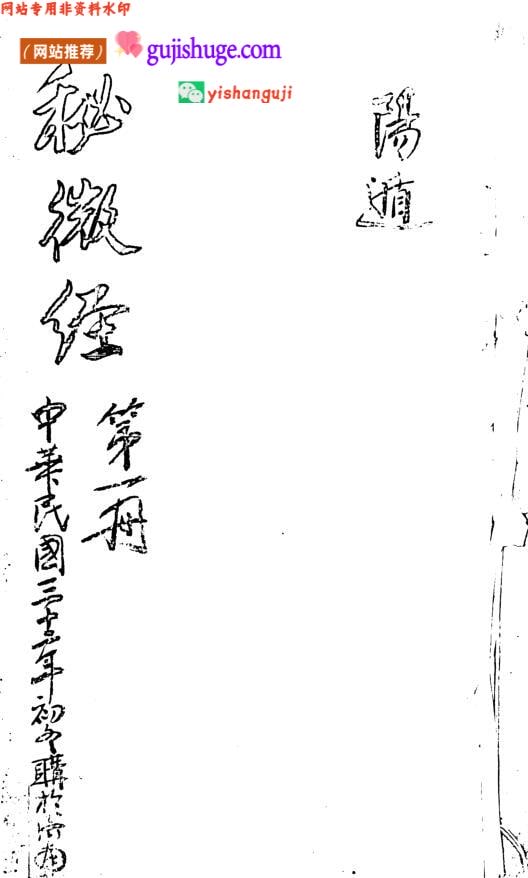 网站专用非资料水印
（网站推荐） gujishuge.com
yishanguji
陽遁
第一册
秘微经
中華民國三十五年初冬購於濟南